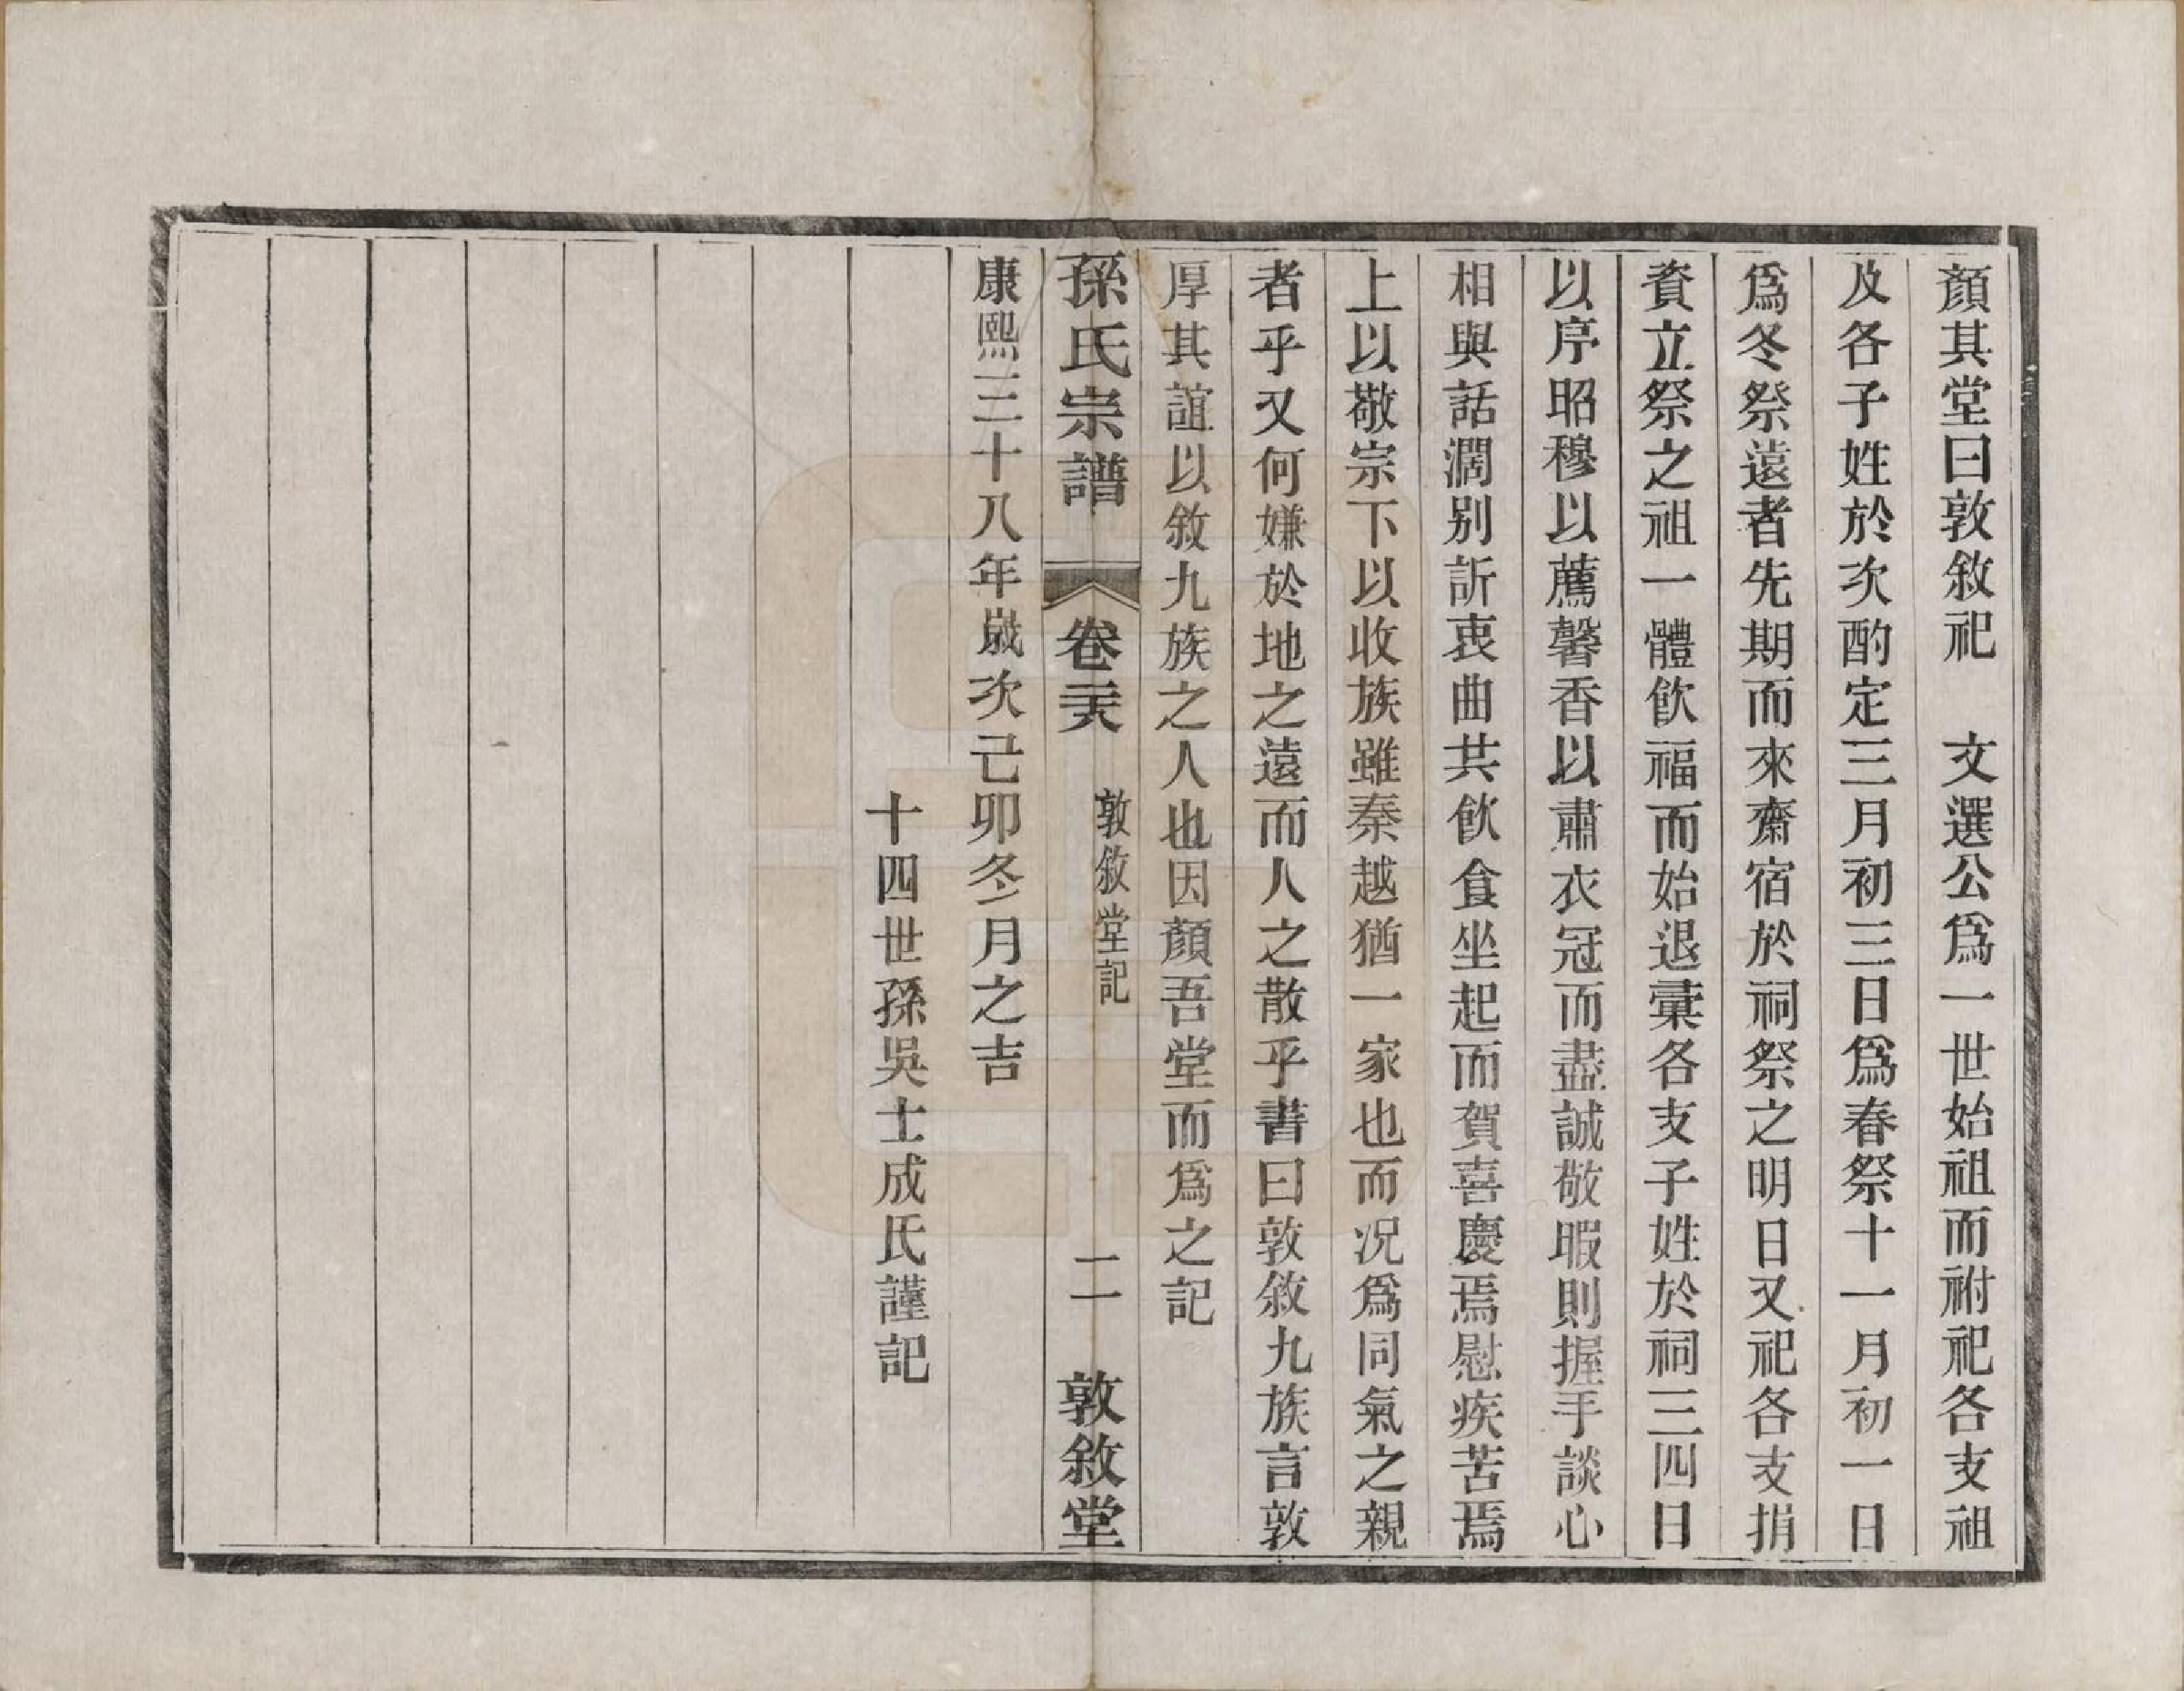 顏其堂曰敦敘祀　文選公爲一世始祖而祔祀各支祖
及各子姓於次酌定三月初三日爲春祭十一月初一日
爲冬祭遠者先期而來齋宿於祠祭之明日又祀各支捐
資立祭之祖一體飮福而始退彙各支子姓於祠三四日
以序昭穆以薦馨香以肅衣冠而盡誠敬暇則握手談心
相與話濶別訢衷曲共飮食坐起而賀喜慶焉慰疾苦焉
上以敬宗下以收族雖秦越猶一家也而況爲同氣之親
者乎又何嫌於地之遠而人之散乎書曰敦敘九族言敦
厚其誼以敘九族之人也因顏吾堂而爲之記
孫氏宗譜　卷二十六　敦敘堂記　二　敦敘堂
康熙三十八年歲次己卯冬月之吉
十四世孫吳士成氏謹記